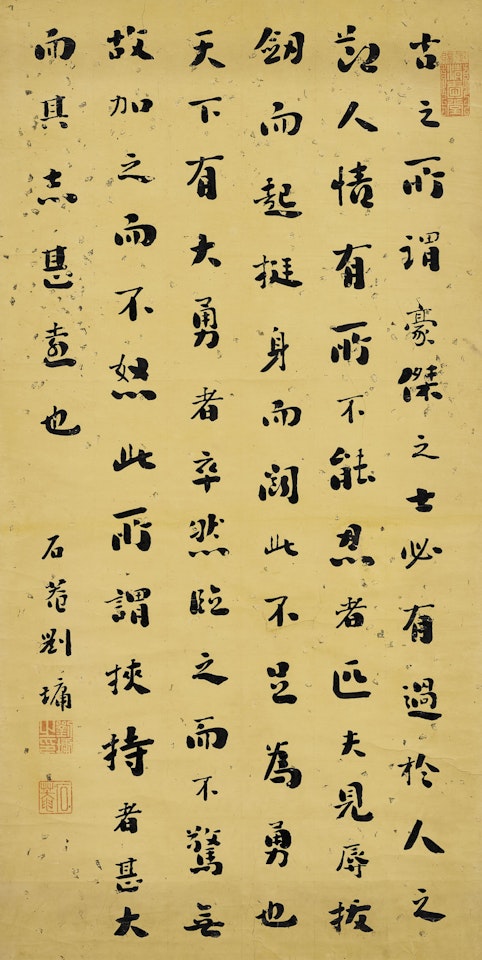 古之所謂豪傑之士必有過於人之
節人情有所不能忍者匹夫見辱拔
劒而起挺身而鬪此不足為勇也
天下有大勇者卒然臨之而不驚無
故加之而不怒此所謂挾持者甚大
而其志甚遠也
石菴劉墉